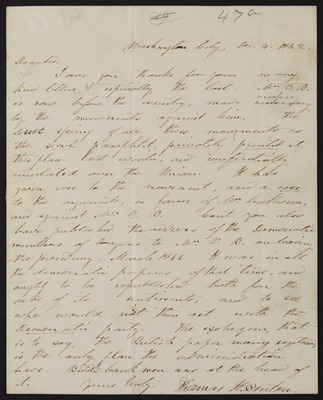 47a
Washington City, Dec. 4. 1842.
Dear Sir,
I owe you thanks for your many
kind letters, & especially the last. Mr. V. B.
is now before the country, made necessary
by the movements against him. The
spring of all these movements is
the scale pamphlet, privately printed at
this place last winter, and confidentially
circulated over the Union. It has
given rise to the movement, and a
to the aspirant, in favor of Mr. Calhoun,
and against Mr. V. B. Can't you also
have published the address of the Democratic
members of Congress to Mr. V. B. on leaving
the presidency, March 1841. It was in all
the democratic papers of that time, and
ought to be republished both for the
sake of its sentiments, and to see
who would not then act with the
Democratic party. The exchequer, that
is to say, the British paper money system,
is the only plan the administration
have. Biddle bank men are at the head of
it. Yours truly, Thomas H. Benton.